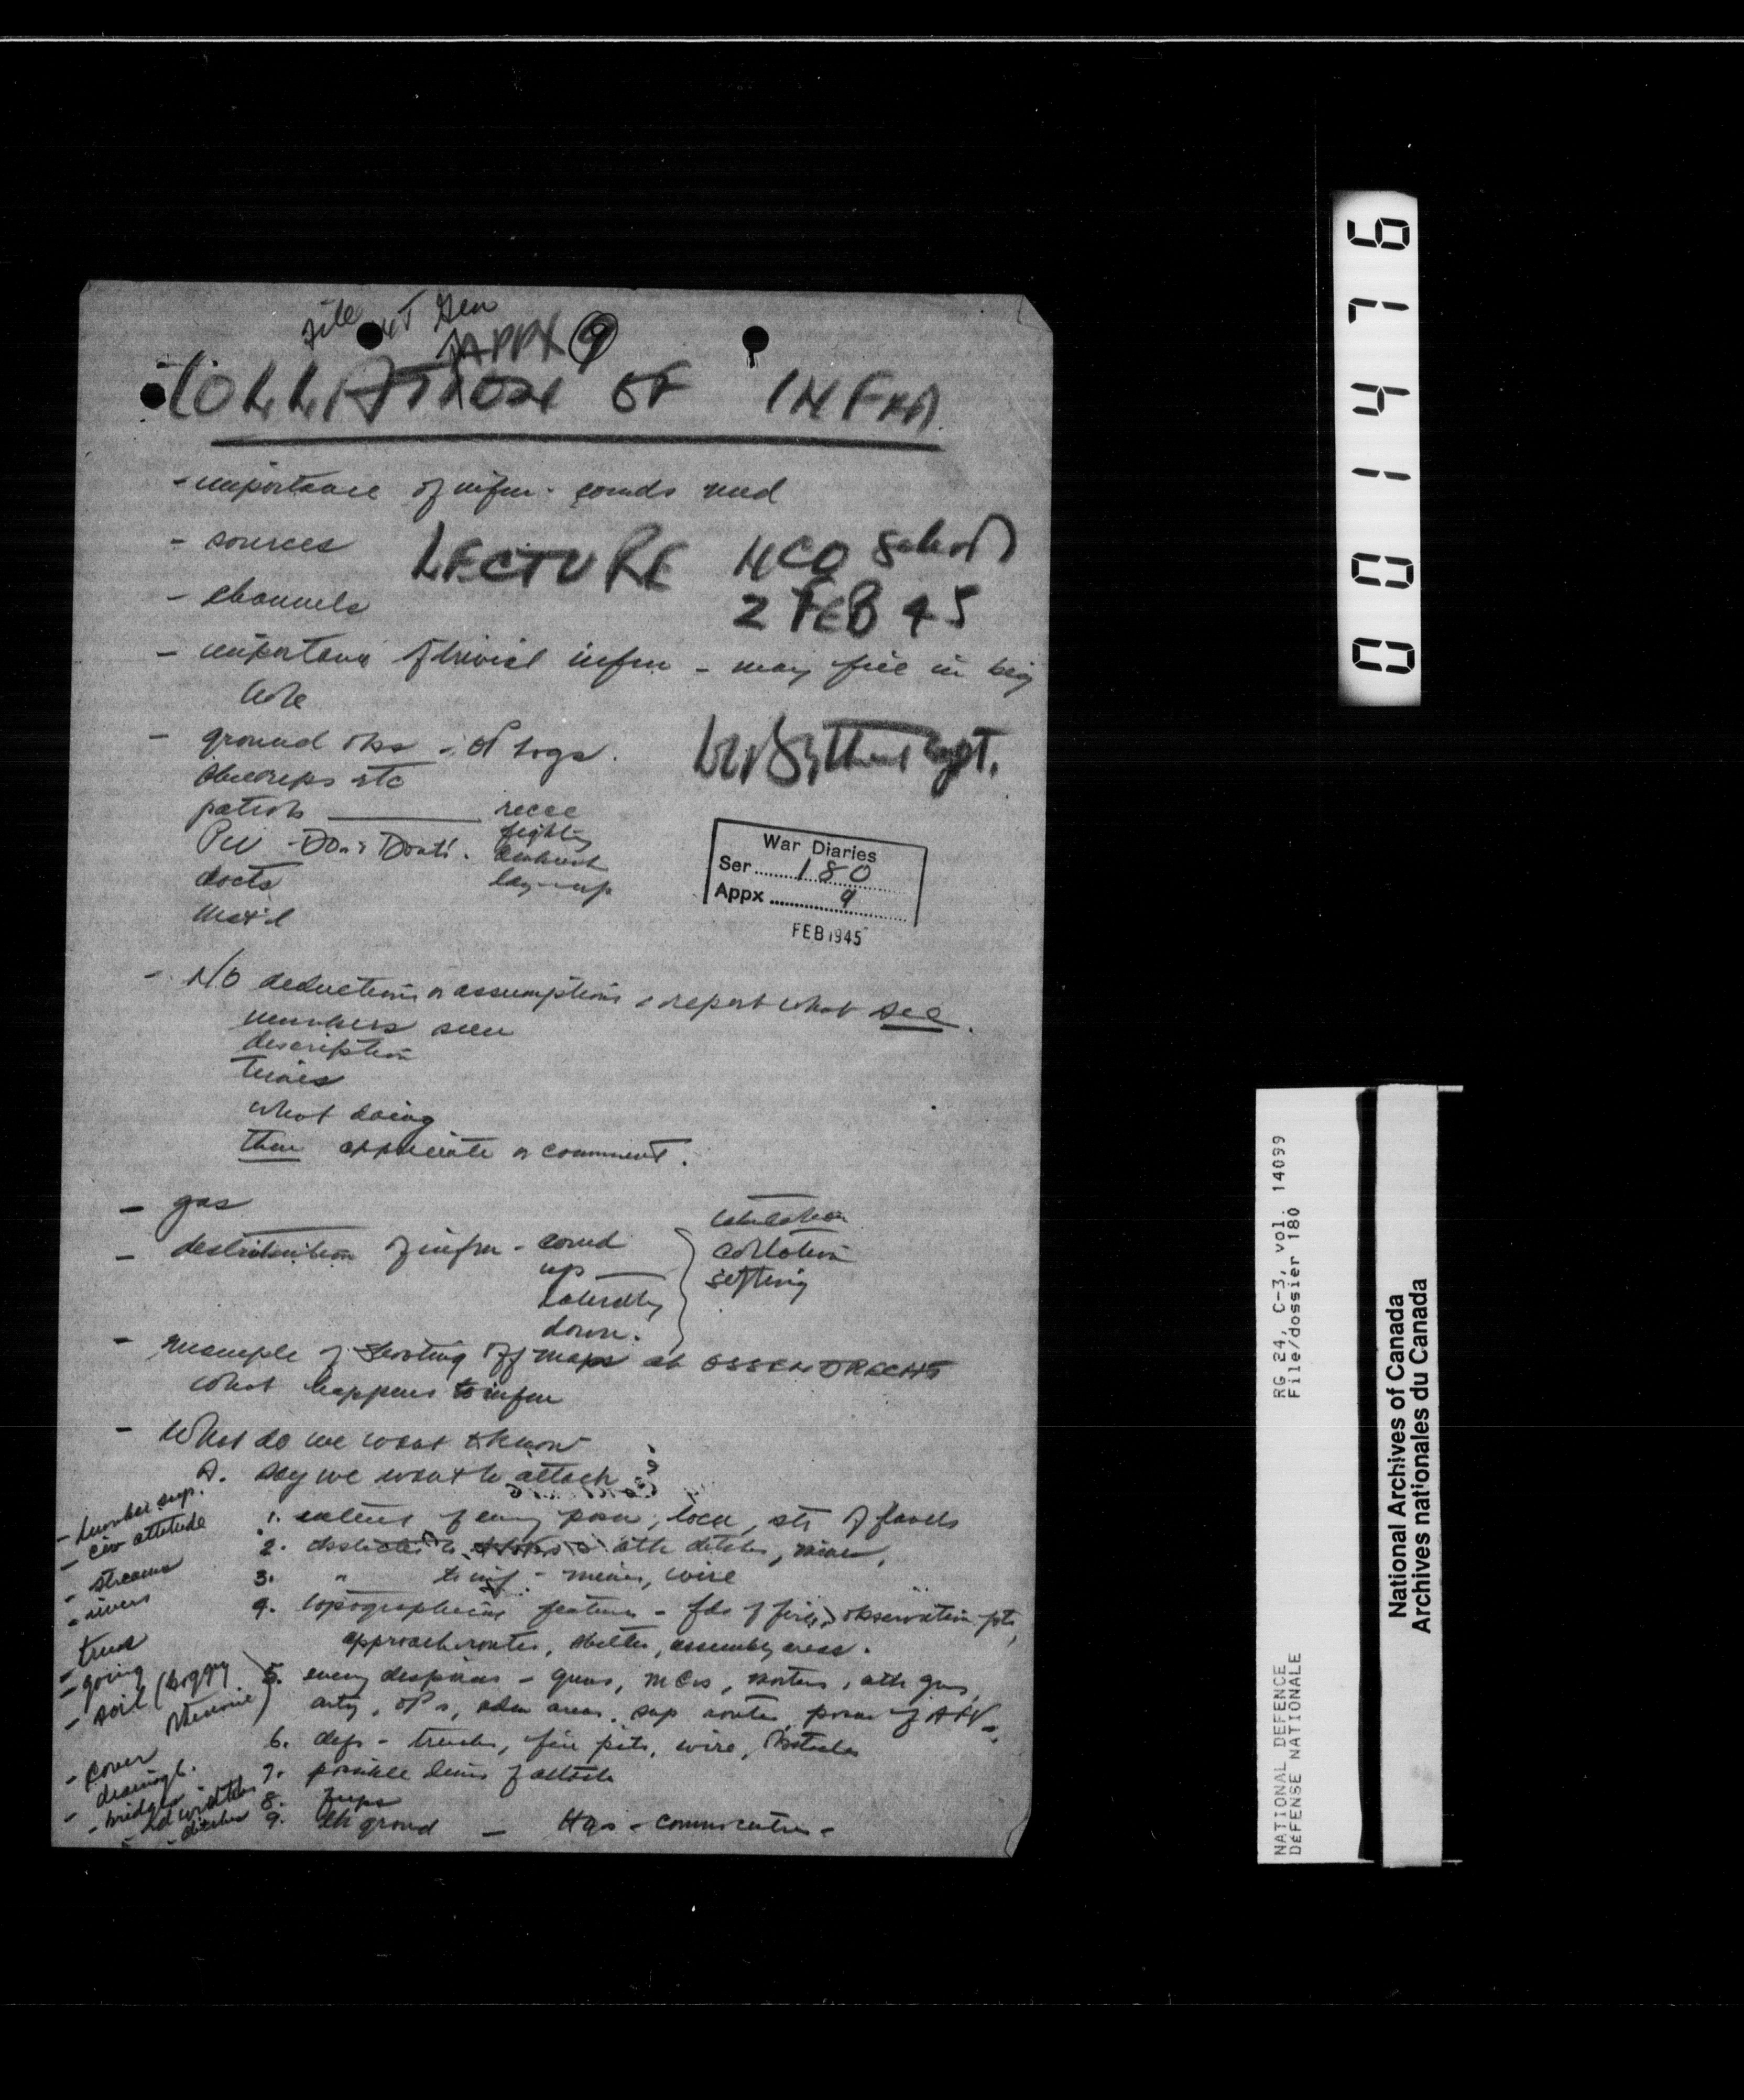 File
Gen
APPX 9
COLLATION OF INFM
- importance of infm - comds need
- sources
LECTURE NCO School
- channels
2 FEB 45
- importance of trivial infm - may fill in big
hole
- ground obs - OP logs.
Capt.
Shelreps etc
patrols ______ recce
fighting
PW - Do's Dont's. ambush
docts
lay-up
Mat'l
War Diaries
Ser 180
Appx 9
FEB 1945
- No deductions or assumptions - report what see.
numbers seen
description
times
what doing
then appreciate or comment.
- gas
- distribution of infm - comd
up
laterally
down.
tabulation
collation
sifting
- example of shooting off maps at OSSENDRECHT
what happens to infm
- What do we want to know
A. Say we want to attack?
1. extent of enemy posn, locn, sts of flanks
2. obstacles to atk ditches, mines,
3. " to inf - mines, wire
4. topographical features - fds of fire, observation pts,
approach routes, shelter, assembly areas.
5. enemy dispns - guns, MGs, mortars, atk guns,
arty, OPs, adm areas, sup routes, posns of AFVs.
6. defs - trenches, fire pits, wire, obstacles
7. possible lines of attack
8. fups
9. high ground - Hqs - communication -
- number sup.
- civ attitude
- streams
- rivers
- trees
- going
- soil (boggy
- cover
- drainage.
- bridges
- rd widths
- ditches
001476
RG 24, C-3, vol. 14099
File/dossier 180
NATIONAL DEFENCE
DÉFENSE NATIONALE
National Archives of Canada
Archives nationales du Canada